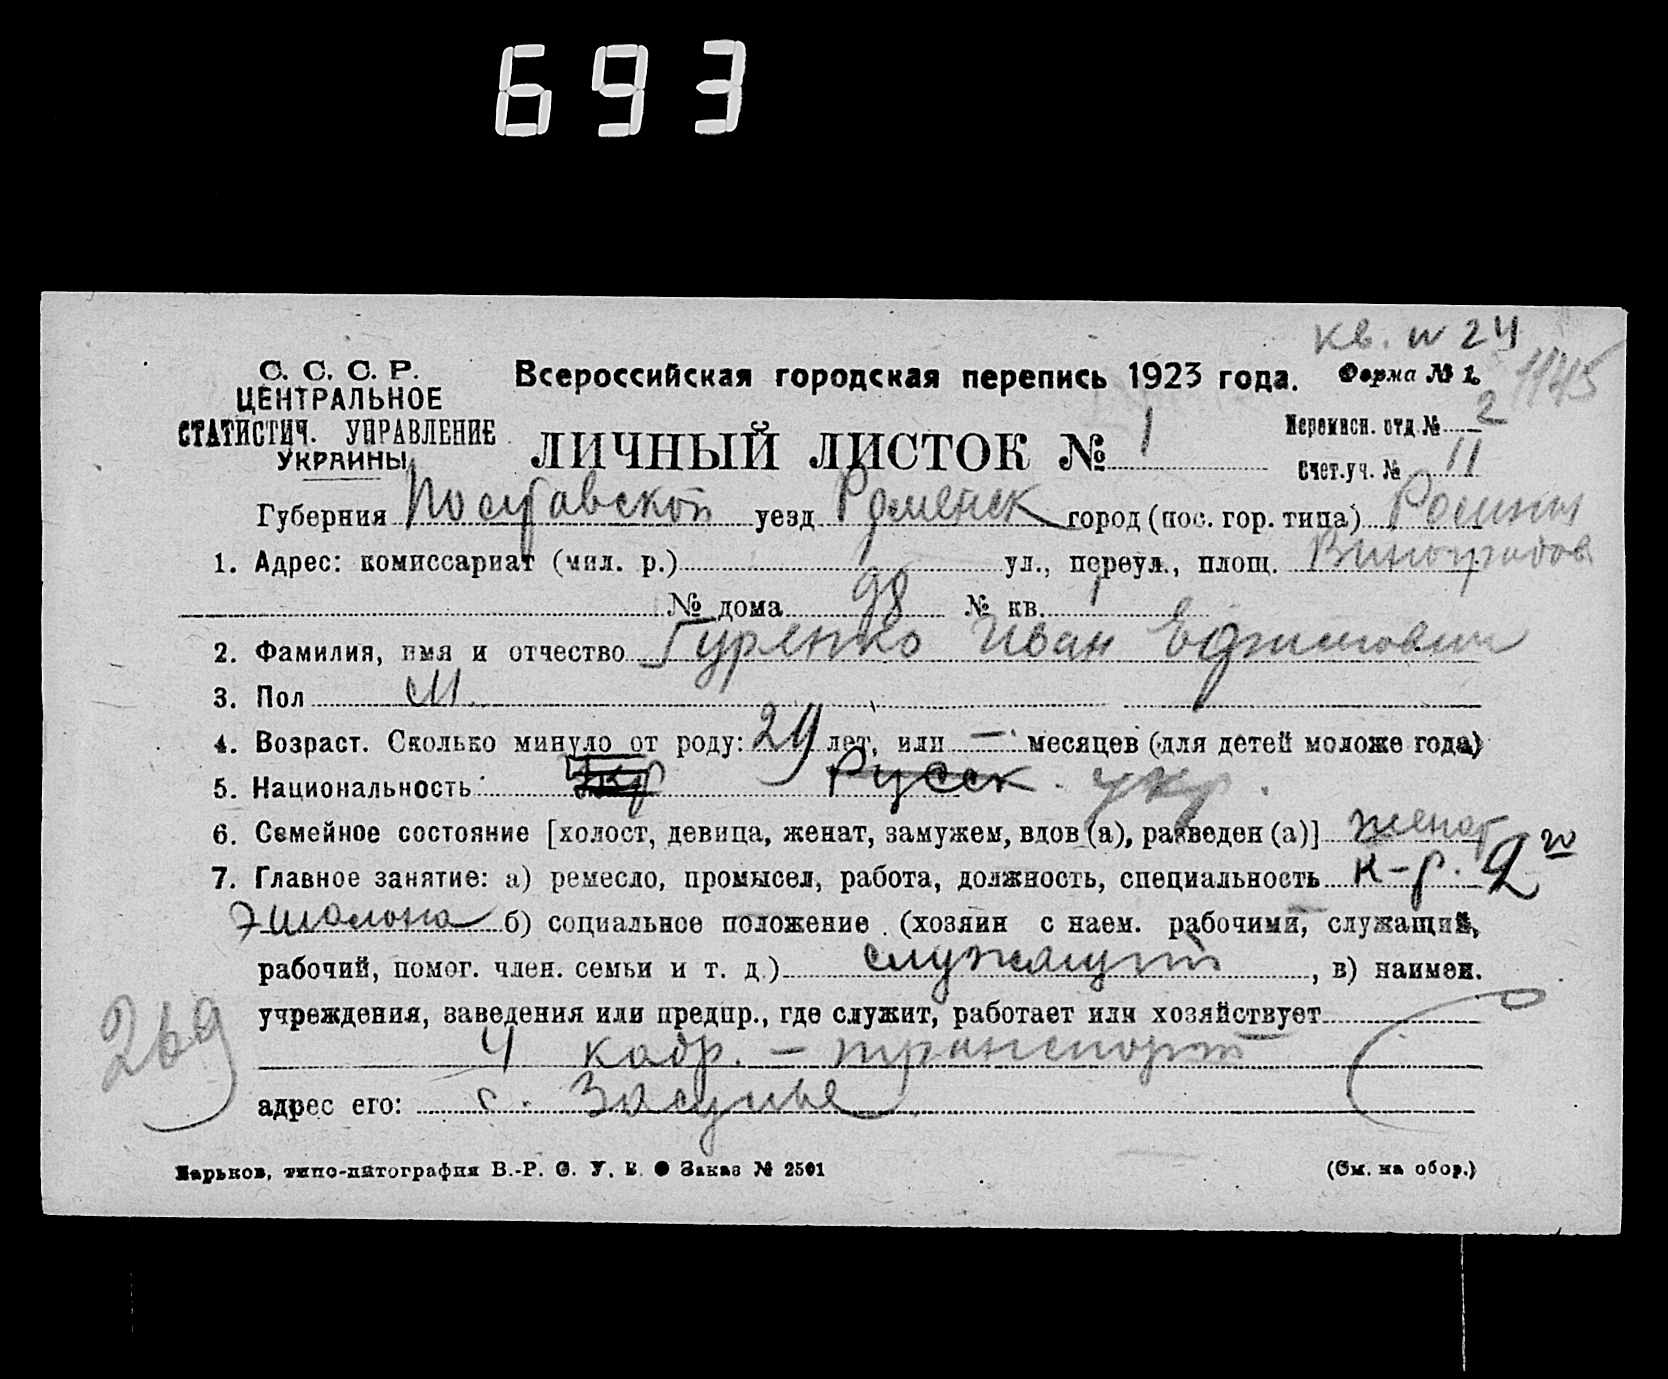 693
кв. № 24
С. С. С. Р.
ЦЕНТРАЛЬНОЕ
СТАТИСТИЧ. УПРАВЛЕНИЕ
УКРАИНЫ
Всероссийская городская перепись 1923 года.
Форма № 1.
1145
ЛИЧНЫЙ ЛИСТОК № 1
Переписн. отд. № 2
Счет. уч. № 11
Губерния Полтавской уезд Роменск город (пос. гор. типа) Ромны
1. Адрес: комиссариат (мил. р.) ул., переул., площ. Виноградов
№ дома 98 № кв. 1
2. Фамилия, имя и отчество Гуренко Иван Ефимович
3. Пол М.
4. Возраст. Сколько минуло от роду: 29 лет, или — месяцев (для детей моложе года)
5. Национальность Русск. укр.
6. Семейное состояние [холост, девица, женат, замужем, вдов (а), разведен (а)] женат
7. Главное занятие: а) ремесло, промысел, работа, должность, специальность к-р. 2го
эшалона б) социальное положение (хозяин с наем. рабочими, служащий,
рабочий, помог. член. семьи и т. д.) служащий, в) наимен.
учреждения, заведения или предпр., где служит, работает или хозяйствует
4 кадр. – транспорт
адрес его: с. Засулье
269
Харьков, типо-литография В.-Р. С. У. В. Заказ № 2501
(См. на обор.)